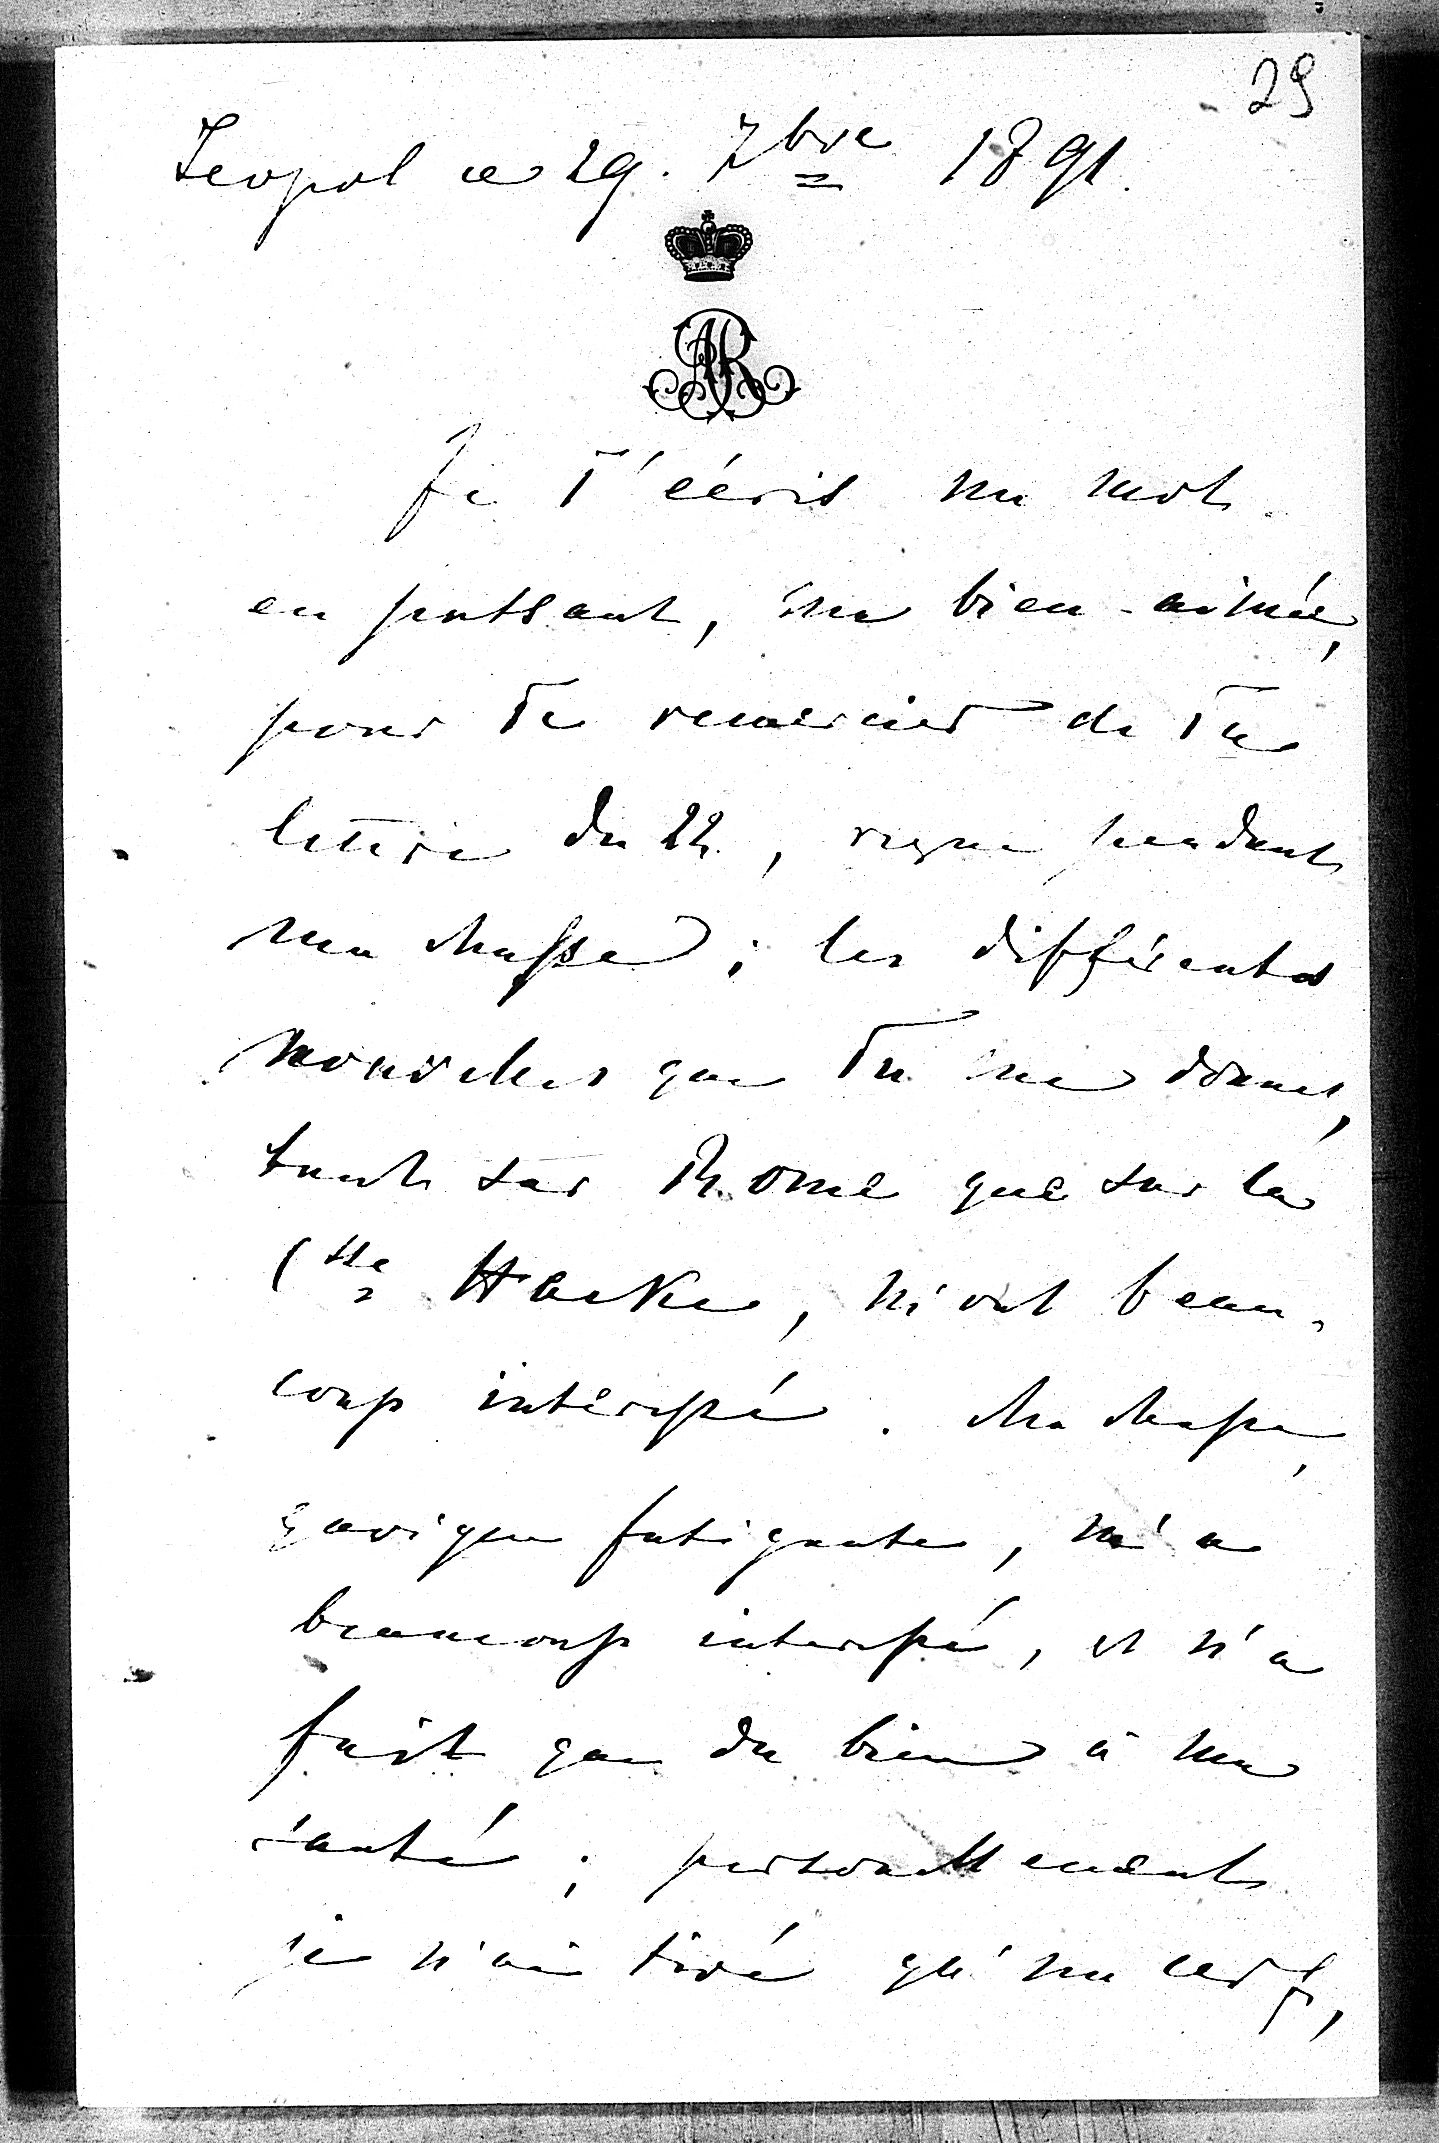 29
Leopol ce 29. 7bre 1891.
AR
Je T'écris un mot
en passant, ma bien-aimée,
pour Te remercier de Ta
lettre du 22, reçue pendant
ma chasse; les différentes
nouvelles que Tu me donnes,
tant sur Rome que sur la
Ctsse Hacke, m'ont beau-
coup intéressé. Ma chasse,
quoique fatigante, m'a
beaucoup intéressé, et n'a
fait que du bien à ma
santé; personellement
je n'ai tiré qu'un cerf,